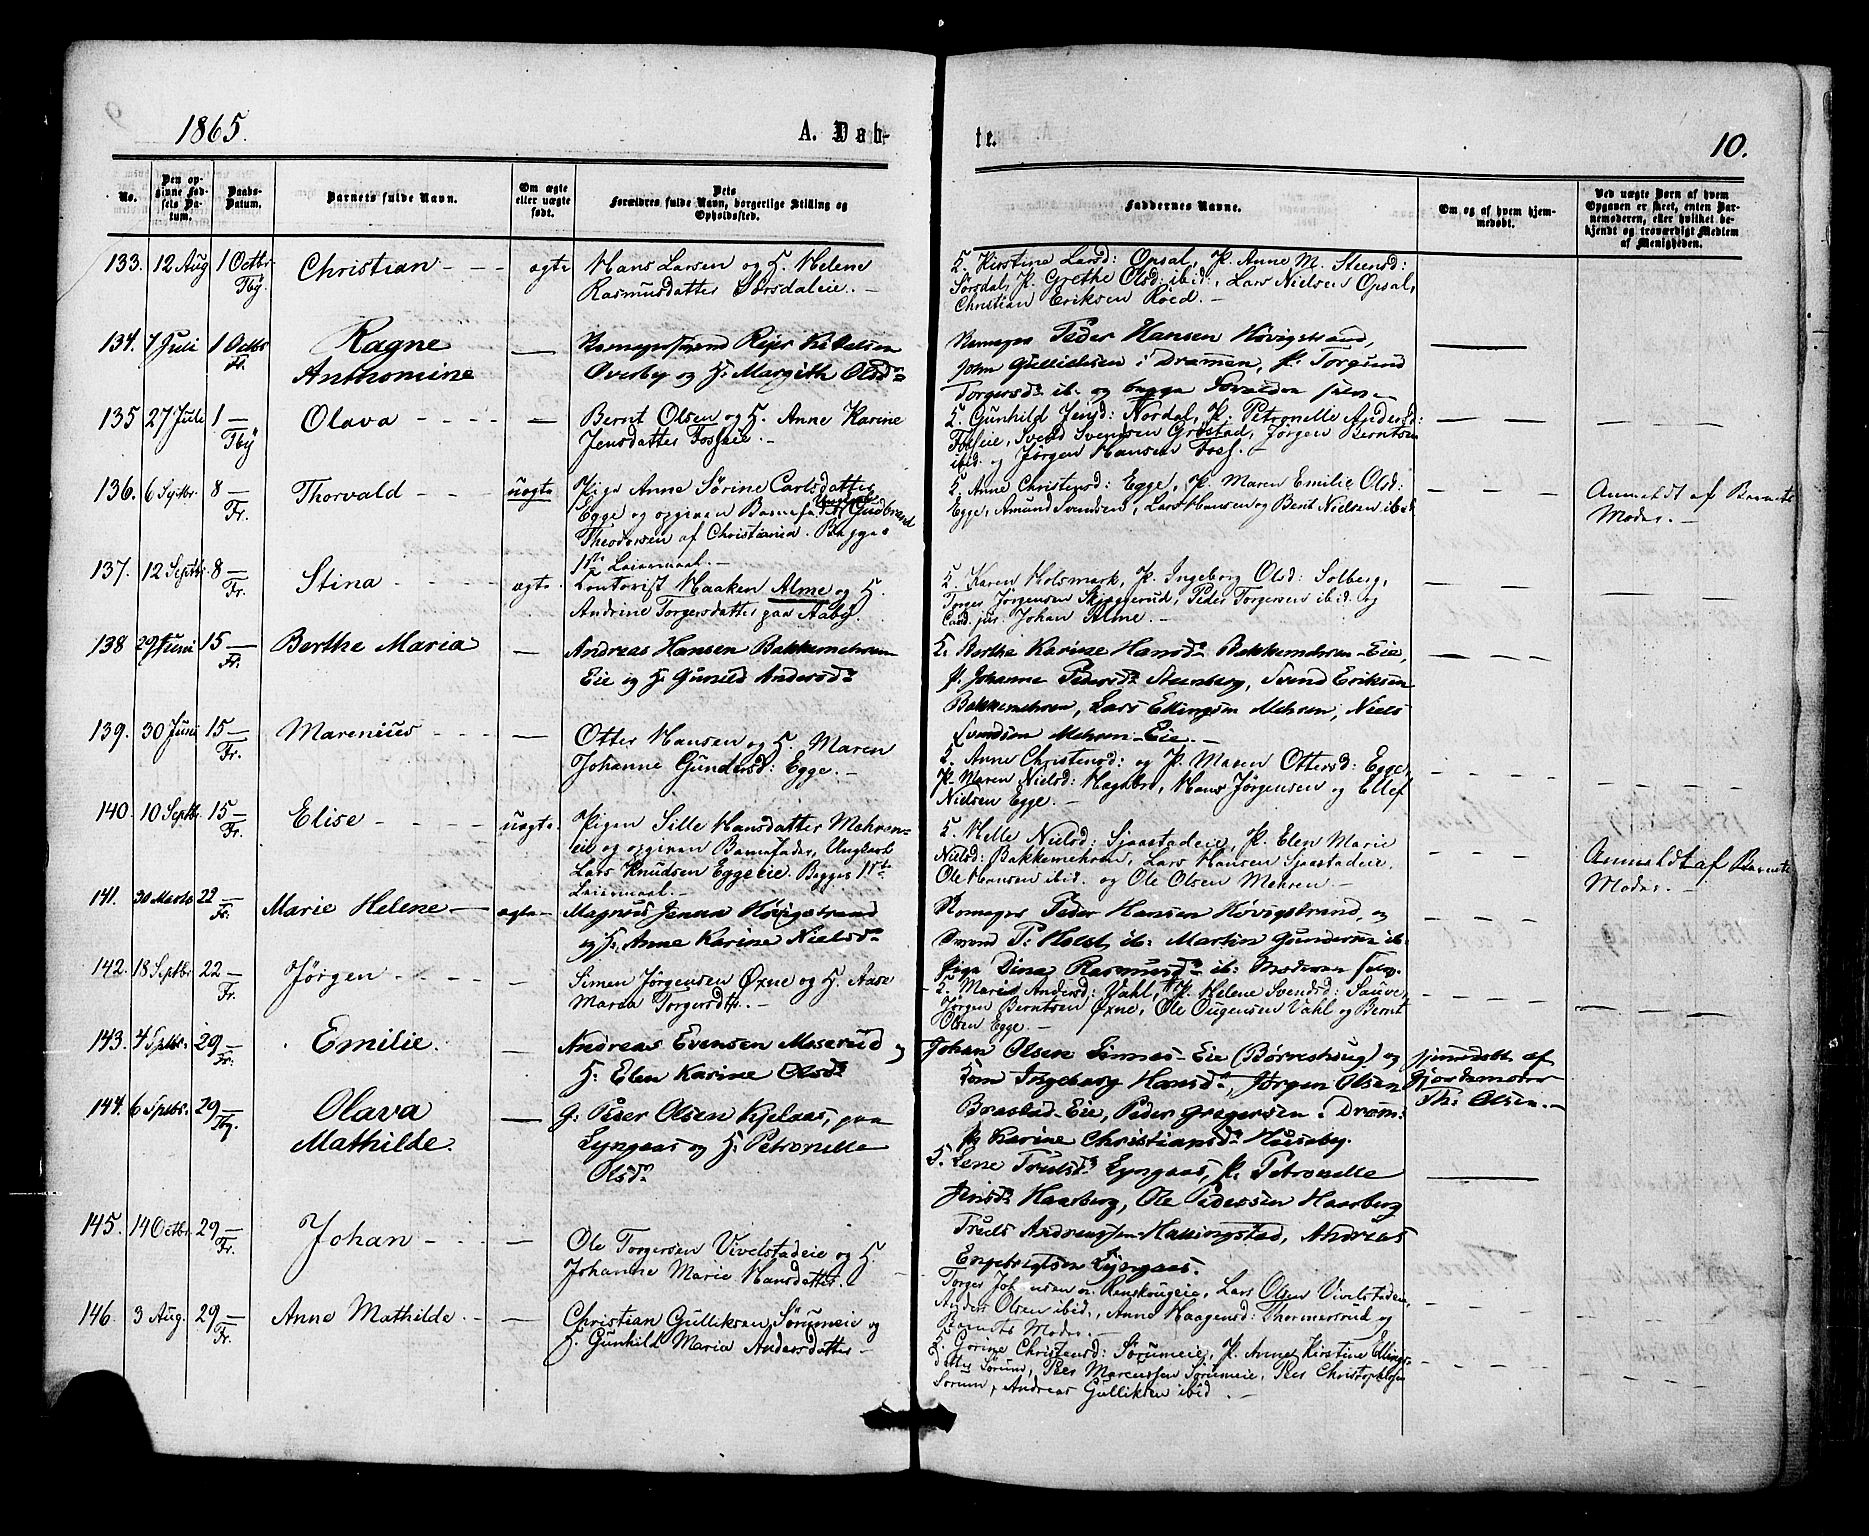 1865.
A. Døb-
te.
10.
No.
Den op-
givne Fød-
sels Da-
tum.
Daabs-
Datum.
Barnets fulde Navn.
Om ægte
eller uægte
født.
Dets
Forældres fulde Navn, borgerlige Stilling og
Opholdssted.
Faddernes Navne.
Om og af hvem hjem-
medøbt.
Ved uægte Børn af hvem
Opgaven er skeet, enten Bar-
nemoderen, eller hvilket be-
kjendt og troværdigt Medlem
af Menigheden.
133. 12 Aug 1 Octbr Tby. Christian - - - ægte Hans Larsen og H. Helene
Rasmusdatter Sørsdaleie. -
K. Kirstine Larsd: Opsal, P. Anne M. Steensd:
Sørsdal, P. Grethe Olsd: ibid:, Lars Nielsen Opsal,
Christian Eriksen Roed. -
134. 7 Juli 1 Octbr Fr. Ragne
Anthomine
Overby og H: Margith Olsdr
Peder Hansen Høvigstrand,
John Gullielsen i Drammen, P. Torgund
Torgersdr ib. og begge Forældre selv -
135 27 Juli 1 - Tby Olava - - - - - Bernt Olsen og H. Anne Karine
Jensdatter Fosseie. -
K. Gunhild Jensd: Nordal, P. Petronelle Andersd:
Fosseie, Svend Svendsen Grøstad, Jørgen Berntsen
ibid. og Jørgen Hansen Foss. -
136. 6 Septbr. 8 - Fr. Thorvald - - - uægte Pige Anne Sørine Carlsdatter
Egge og opgiven Barnefader Ungkarl Gudbrand
Theodorsen af Christiania. Begges
1ste Leiermaal. -
K. Anne Christensd: Egge, P. Maren Emilie Olsd:
Egge, Amund Svendsen, Lars Hansen og Bent Nielsen ibid.
Anmeldt af Barnets
Moder. -
137. 12 Septbr. 8 - Fr. Stina - - - - ægte Contorist Haaken Alme og H.
Andrine Torgersdatter paa Aaby.
K. Karen Holsmark, P. Ingeborg Olsd: Solberg,
Torger Jørgensen Skjæggerud, Peder Torgersen ibid. og
Cand. jur. Johan Alme. -
138 29 Juni 15 - Fr. Berthe Maria - Andreas Hansen Bakkemehren
Eie og H: Gunild Andersdr
K. Berthe Karine Hansdr Bakkemehren-Eie,
P. Johanne Pedersdr Steenberg, Svend Eriksen
Bakkemehren, Lars Ellingsen Mehren, Niels
Svendsen Mehren-Eie. -
139. 30 Juni 15 - Fr. Marenius - - - - Otter Hansen og H. Maren
Johanne Gundersd: Egge. -
K. Anne Christensd: og P. Maren Ottersd: Egge,
P. Maren Nielsd: Haghbro, Hans Jørgensen og Ellef
Nielsen Egge. -
140. 10 Septbr. 15 - Fr. Elise - - - - uægte. Pigen Sille Hansdatter Mehren-
eie og opgiven Barnefader, Ungkarl
Lars Knudsen Eggeeie. Begges 1ste
Leiermaal. -
K. Helle Nielsd: Sjaastadeie, P. Elen Marie
Nielsd: Bakkemehren, Lars Hansen Sjaastadeie,
Ole Hansen ibid. og Ole Olsen Mehren. -
Anmeldt af Barnets
Moder. -
141. 30 Marts 22 - Fr. Marie Helene - ægte Magnus Jensen Høvigstrand
og H: Anne Karine Nielsdr
Peder Hansen Høvigstrand, og
P: Holst, ib: Martin Gundersen ib.
Pige Dina Rasmusdr ib: Moderen selv.
142. 18 Septbr. 22 - Fr. Jørgen - - - - Simen Jørgensen Øxne og H. Aase
Maria Torgersdtr. -
K. Marie Andersd: Vahl, P. Helene Svendsd: Sauve,
Jørgen Berntsen Øxne, Ole Ougensen Vahl og Bernt
Olsen Egge. -
143. 4 Septbr. 29 - Fr. Emilie. - Andreas Evensen Moserud og
H: Elen Karine Olsdr
Johan Olsen Linnes-Eie (Børreshaug) og
Kone Ingeborg Hansdr, Jørgen Olsen
Brastad-Eie, Peder Gregersen i Dram:
P. Karine Christiansdr Houseby.
hjemmedøbt af
Gjordemoder
Th: Olsen. -
144. 6 Septbr. 29 - Tby. Olava
Mathilde. - G: Peder Olsen Kjelaas, paa
Lyngaas og H: Petronelle
Olsdr
K. Lene Trulsdr Lyngaas, P. Petronelle
Jensdr Haarberg, Ole Pedersen Haarberg
Truls Andreassen Hallingstad, Andreas
Engebrigtsen Lyngaas.
145. 14 Octbr. 29 - Fr. Johan - - - - Ole Torgersen Vivelstadeie og H.
Johanne Marie Hansdatter.
Ranskougeie, Lars Olsen Vivelstadeie,
Anders Olsen ibid., Anne Haagensd: Thormersrud og
Barnets Moder. -
146. 3 Aug. 29 - Fr. Anne Mathilde. - - Christian Gulliksen Sørumeie og
H. Gunhild Maria Andersdatter -
K. Gorine Christensd: Sørumeie, P. Anne Kirstine Ellings-
datter Sørum, Peer Marcussen Sørumeie, Peer Christophersen
Sørum, Andreas Gulliksen ibid. -